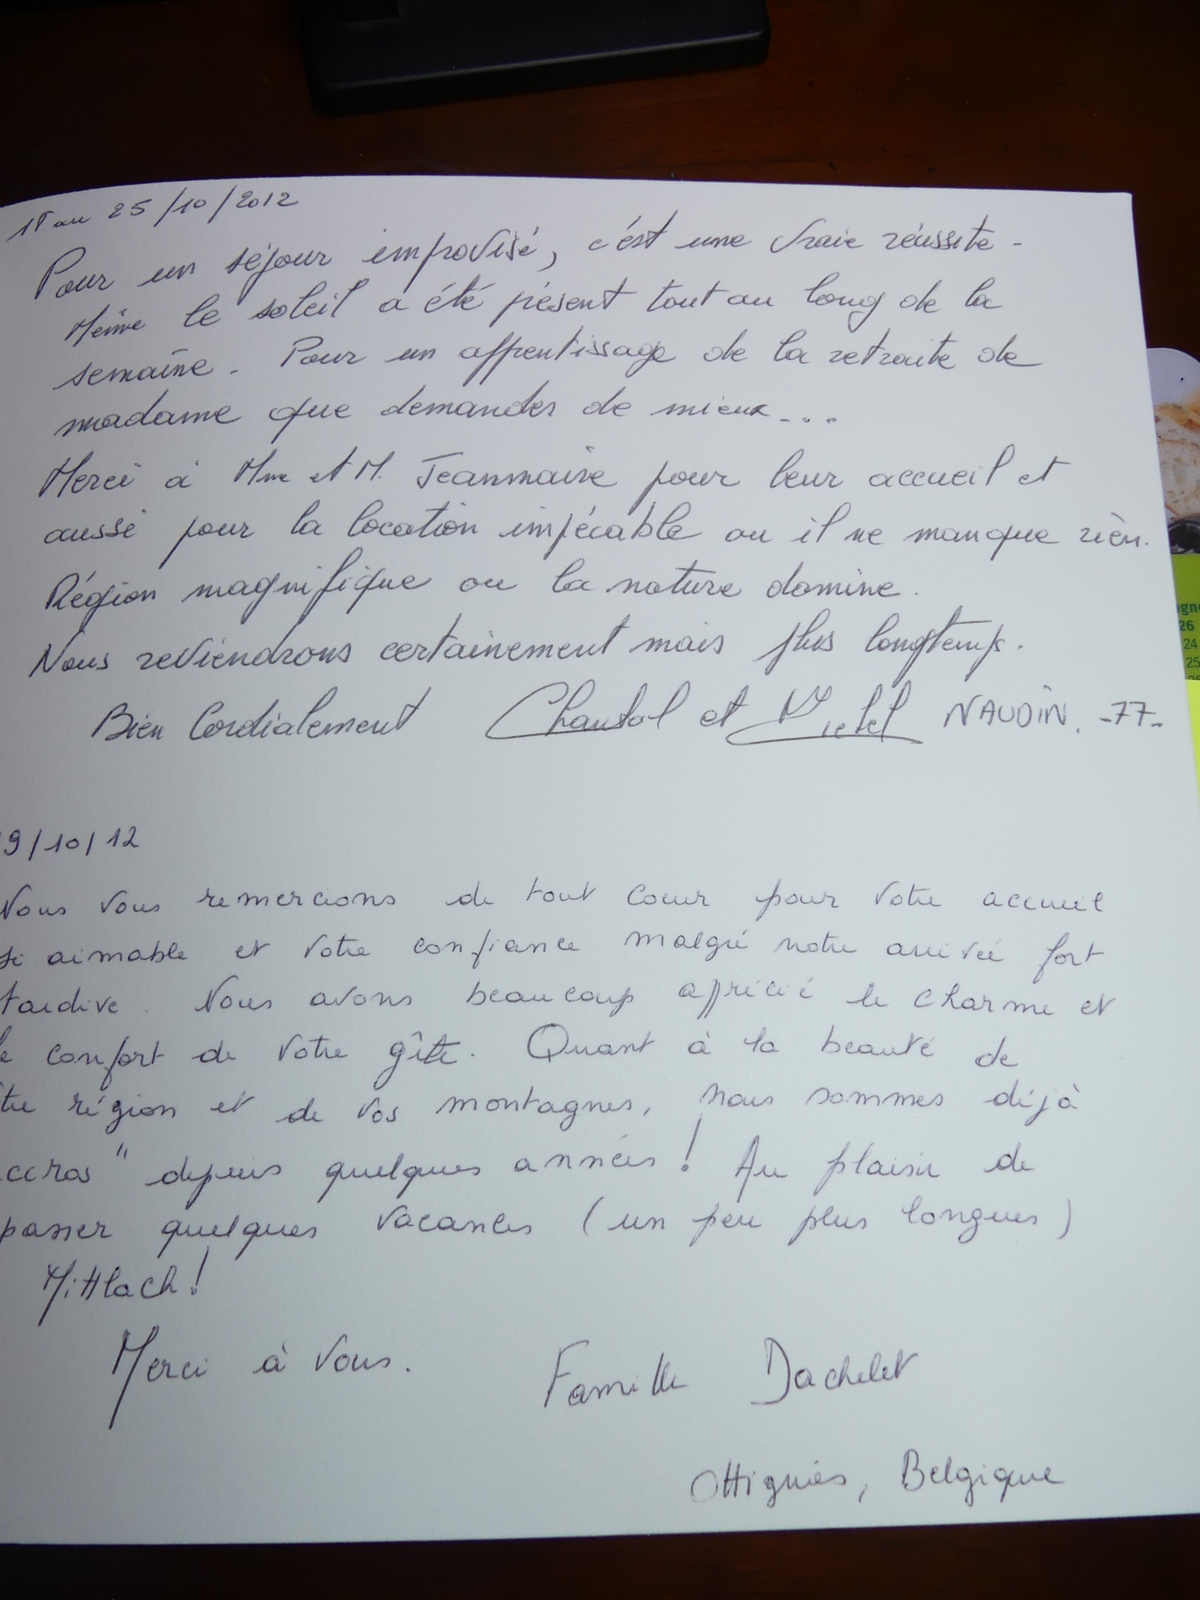 18 au 25/10/2012
Pour un séjour improvisé, c'est une vraie réussite -
Même le soleil a été présent tout au long de la
semaine. Pour un apprentissage de la retraite de
madame que demander de mieux...
Merci à Mme et M. Jeanmaire pour leur accueil et
aussi pour la location impécable ou il ne manque rien.
Région magnifique ou la nature domine.
Nous reviendrons certainement mais plus longtemps.
Bien Cordialement Chantal et Michel NAUDIN. -77-
9/10/12
Nous vous remercions de tout coeur pour votre accueil
si aimable et votre confiance malgré notre arrivée fort
tardive. Nous avons beaucoup apprécié le charme et
le confort de votre gîte. Quant à la beauté de
tre région et de vos montagnes, nous sommes déjà
ccros" depuis quelques années! Au plaisir de
passer quelques vacances (un peu plus longues)
Mittlach!
Merci à vous. Famille Dachelet
Ottignies, Belgique
26
24
25